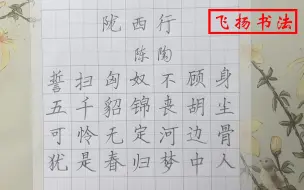 飞扬书法
陇西行
陈陶
誓扫匈奴不顾身
五千貂锦丧胡尘
可怜无定河边骨
犹是春归梦中人